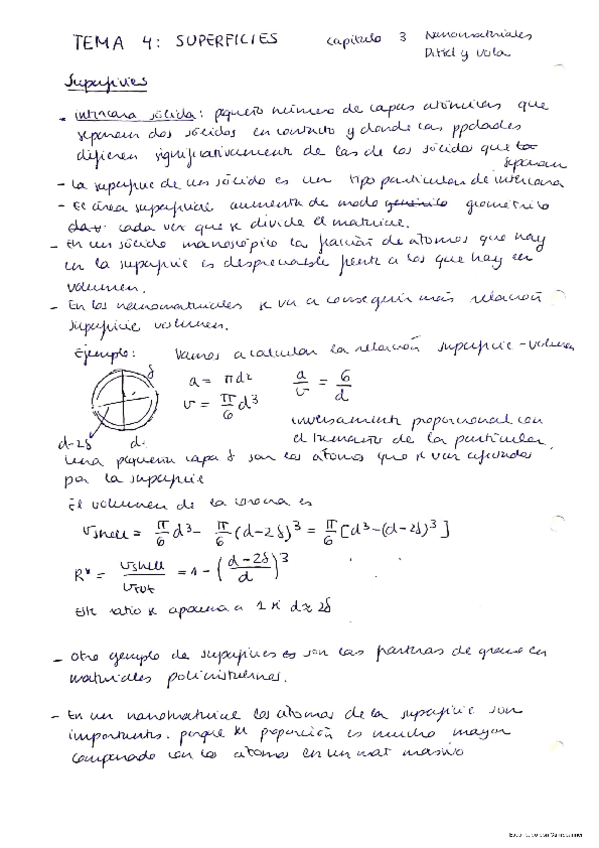 TEMA 4: SUPERFICIES capitulo 3 Nanomateriales
Ditiel y vola
Superficies
- intercara sólida: pequeño número de capas atómicas que
separan dos sólidos en contacto y donde las ppdades
difieren significativamente de las de los sólidos que
separan
- La superficie de un sólido es un tipo particular de intercara
- El área superficial aumenta de modo geométrico
cada vez que se divide el material.
- En un sólido macroscópico la fracción de átomos que hay
en la superficie es despreciable frente a los que hay en
volumen.
- En los nanomateriales se va a conseguir más relación
superficie volumen.
Ejemplo: Vamos a calcular la relación superficie-volumen
δ
a = πd² a/v = 6/d
v = π/6 d³
inversamente proporcional con
el tamaño de la partícula.
d-2δ d.
Una pequeña capa δ son los átomos que se van afectados
por la superficie
El volumen de la corona es
Vshell = π/6 d³ - π/6 (d-2δ)³ = π/6 [d³-(d-2δ)³]
R* = Vshell/Vtot = 1 - ((d-2δ)/d)³
Este ratio se aproxima a 1 si d≈2δ
- Otro ejemplo de superficies son las fronteras de grano en
materiales policristalinos.
- En un nanomaterial los átomos de la superficie son
importantes. porque su proporción es mucho mayor
comparado con los átomos en un mat masivo